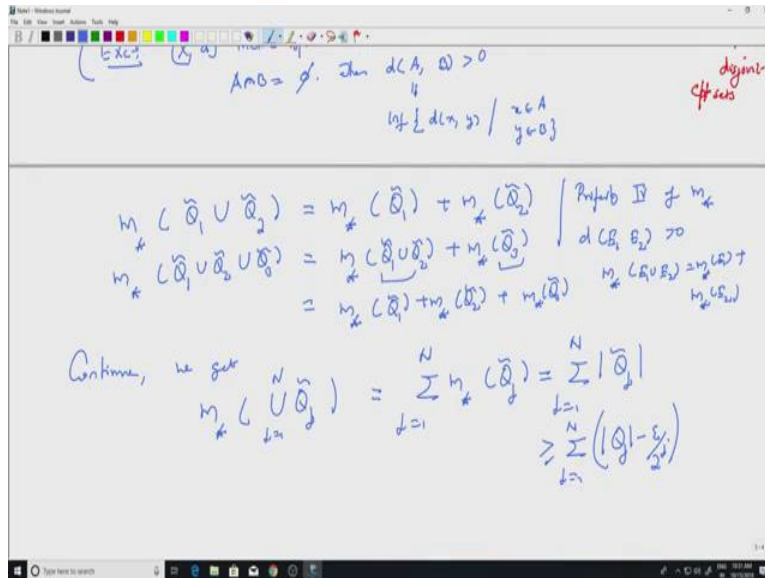 Note1 - Windows Journal
File Edit View Insert Actions Tools Help
(X, d)
A∩B = φ. Then d(A, B) > 0
inf { d(x, y) / x∈A
y∈B}
disjoint
cpt sets
m_* (Q̃_1 ∪ Q̃_2) = m_* (Q̃_1) + m_* (Q̃_2)
m_* (Q̃_1 ∪ Q̃_2 ∪ Q̃_3) = m_* (Q̃_1 ∪ Q̃_2) + m_* (Q̃_3)
= m_* (Q̃_1) + m_* (Q̃_2) + m_* (Q̃_3)
Property IV of m_*
d(E_1, E_2) > 0
m_* (E_1 ∪ E_2) = m_*(E_1) +
m_*(E_2)
Continue, we get
m_* ( ∪_{j=1}^N Q̃_j ) = ∑_{j=1}^N m_* (Q̃_j) = ∑_{j=1}^N |Q̃_j|
≥ ∑_{j=1}^N (|Q_j| - ε/2^j)
Type here to search
10:31 AM
10/15/2018